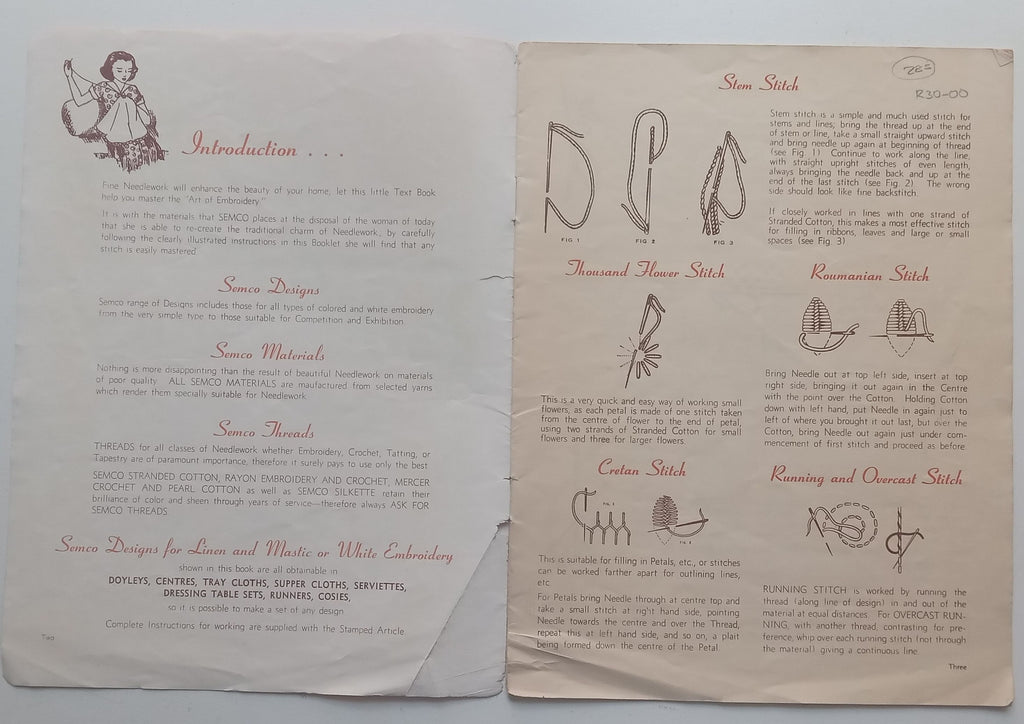 Introduction . . .
Fine Needlework will enhance the beauty of your home, let this little Text Book
help you master the "Art of Embroidery."
It is with the materials that SEMCO places at the disposal of the woman of today
that she is able to re-create the traditional charm of Needlework, by carefully
following the clearly illustrated instructions in this Booklet she will find that any
stitch is easily mastered.
Semco Designs
Semco range of Designs includes those for all types of colored and white embroidery
from the very simple type to those suitable for Competition and Exhibition
Semco Materials
Nothing is more disappointing than the result of beautiful Needlework on materials
of poor quality. ALL SEMCO MATERIALS are maufactured from selected yarns
which render them specially suitable for Needlework
Semco Threads
THREADS for all classes of Needlework whether Embroidery, Crochet, Tatting, or
Tapestry are of paramount importance, therefore it surely pays to use only the best
SEMCO STRANDED COTTON, RAYON EMBROIDERY AND CROCHET, MERCER
CROCHET AND PEARL COTTON as well as SEMCO SILKETTE retain their
brilliance of color and sheen through years of service—therefore always ASK FOR
SEMCO THREADS
Semco Designs for Linen and Mastic or White Embroidery
shown in this book are all obtainable in
DOYLEYS, CENTRES, TRAY CLOTHS, SUPPER CLOTHS, SERVIETTES,
DRESSING TABLE SETS, RUNNERS, COSIES,
so it is possible to make a set of any design
Complete Instructions for working are supplied with the Stamped Article
Two
R30-00
Stem Stitch
FIG 1
FIG 2
FIG 3
Stem stitch is a simple and much used stitch for
stems and lines; bring the thread up at the end
of stem or line, take a small straight upward stitch
and bring needle up again at beginning of thread
(see Fig. 1) Continue to work along the line,
with straight upright stitches of even length,
always bringing the needle back and up at the
end of the last stitch (see Fig. 2). The wrong
side should look like fine backstitch.
If closely worked in lines with one strand of
Stranded Cotton, this makes a most effective stitch
for filling in ribbons, leaves and large or small
spaces (see Fig. 3)
Thousand Flower Stitch
This is a very quick and easy way of working small
flowers, as each petal is made of one stitch taken
from the centre of flower to the end of petal,
using two strands of Stranded Cotton for small
flowers and three for larger flowers.
Roumanian Stitch
Bring Needle out at top left side, insert at top
right side, bringing it out again in the Centre
with the point over the Cotton. Holding Cotton
down with left hand, put Needle in again just to
left of where you brought it out last, but over the
Cotton, bring Needle out again just under com-
mencement of first stitch and proceed as before.
Cretan Stitch
FIG 1
FIG 2
This is suitable for filling in Petals, etc., or stitches
can be worked farther apart for outlining lines,
etc
For Petals bring Needle through at centre top and
take a small stitch at right hand side, pointing
Needle towards the centre and over the Thread,
repeat this at left hand side, and so on, a plait
being formed down the centre of the Petal.
Running and Overcast Stitch
RUNNING STITCH is worked by running the
thread (along line of design) in and out of the
material at equal distances. For OVERCAST RUN-
NING, with another thread, contrasting for pre-
ference, whip over each running stitch (not through
the material) giving a continuous line.
Three